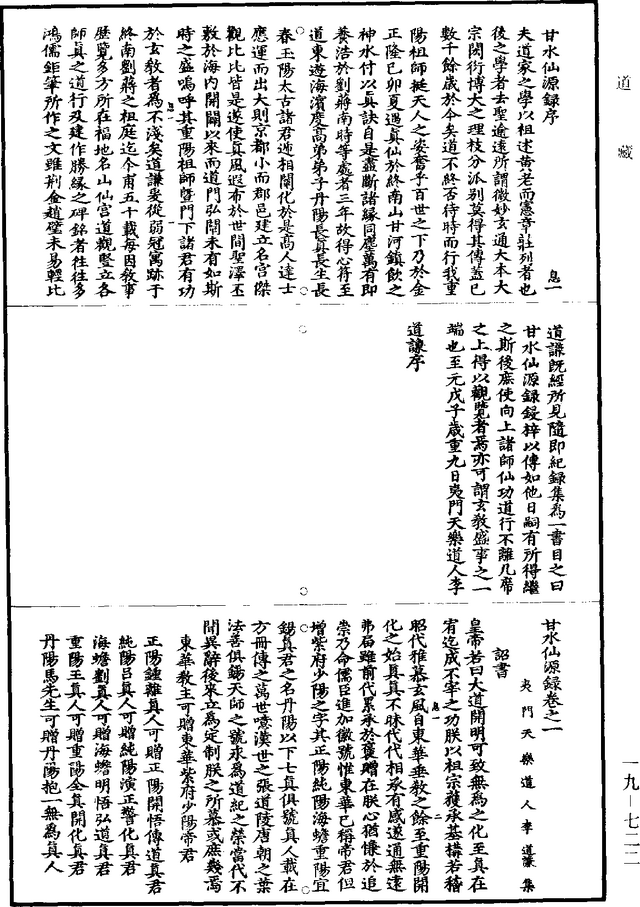 道藏
甘水仙源録序
息一
夫道家之學以祖述黄老而憲章莊列者也
後之學者去聖逾遠所謂微妙玄通大本大
宗閎衍博大之理枝分派别莫得其傳蓋已
數千餘歲於今矣道不終否待時而行我重
陽祖師挺天人之姿奮乎百世之下乃於金
正隆己卯夏遇真仙於終南山甘河鎮飲之
神水付以真訣自是盡斷諸緣同塵萬有即
養浩於劉蔣南時等處者三年故得心符至
道東遊海濱度高弟弟子丹陽長真長生長
春玉陽太古諸君逓相闡化於是高人達士
應運而出大則京都小而郡邑建立名宫傑
觀比比皆是遂使真風遐布於世間聖澤丕
敷於海内開闢以來而道門弘闡未有如斯
時之盛嗚呼其重陽祖師曁門下諸君有功
於玄教者為不淺矣道謙爰從弱冠寓跡于
終南劉蔣之祖庭迄今甫五十載每因教事
歴覽多方所在福地名山仙宫道觀竪立各
師真之道行及建作勝緣之碑銘者往往多
鴻儒鉅筆所作之文雖荆金趙璧未易輕比
道謙既經所見隨即紀録集為一書目之曰
甘水仙源録鋟梓以傳如他日嗣有所得繼
之斯後庶使向上諸師仙功道行不離几席
之上得以觀覽者焉亦可謂玄教盛事之一
端也至元戊子歲重九日夷門天樂道人李
道謙序
甘水仙源録卷之一
夷門天樂道人李道謙集
詔書
皇帝若曰大道開明可致無為之化至真在
宥迄成不宰之功朕以祖宗獲承基構若稽
昭代雅慕玄風自東華垂教之餘至重陽開
化之始真真不昧代代相承有感遂通無遠
弗届雖前代累承於褒贈在朕心猶慊於追
崇乃命儒臣進加徽號惟東華已稱帝君但
增紫府少陽之字其正陽純陽海蟾重陽宜
錫真君之名丹陽以下七真俱號真人載在
方冊傳之萬世噫漢世之張道陵唐朝之葉
法善俱錫天師之號永為道紀之榮當代不
聞異辭後來立為定制朕之所慕或庶幾焉
東華教主可贈東華紫府少陽帝君
正陽鍾離真人可贈正陽開悟傳道真君
純陽吕真人可贈純陽演正警化真君
海蟾劉真人可贈海蟾明悟弘道真君
重陽王真人可贈重陽全真開化真君
丹陽馬先生可贈丹陽抱一無為真人
一九—七二二